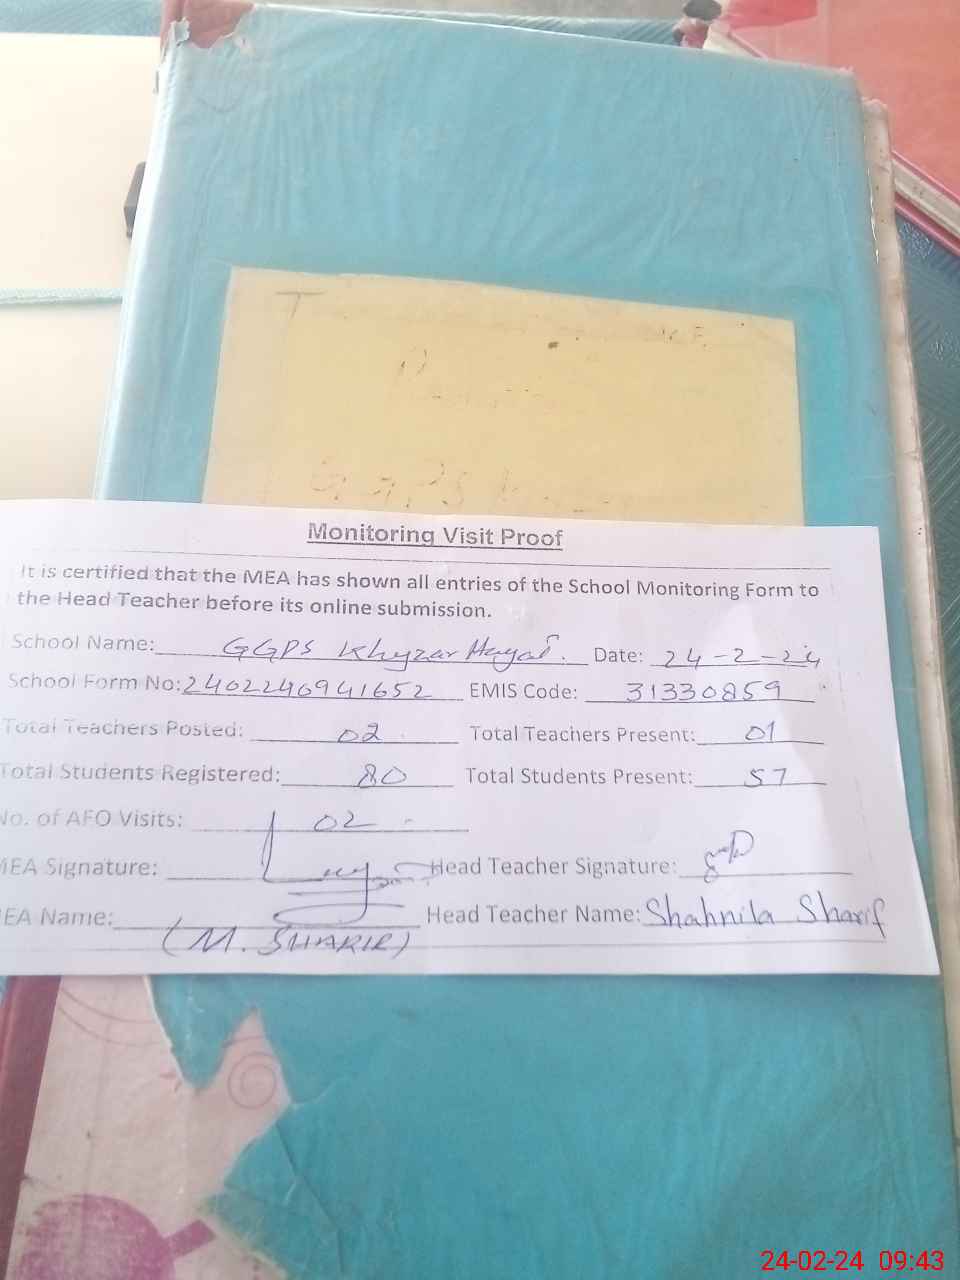 K.F.
GGPS
Monitoring Visit Proof
It is certified that the MEA has shown all entries of the School Monitoring Form to
the Head Teacher before its online submission.
School Name: GGPS Khyzar Hayat. Date: 24-2-24
School Form No: 2402240941652 EMIS Code: 31330859
Total Teachers Posted: 02 Total Teachers Present: 01
Total Students Registered: 80 Total Students Present: 57
No. of AFO Visits: 02
MEA Signature: Head Teacher Signature:
MEA Name: Head Teacher Name: Shahnila Sharif
(M. SHAKIR)
24-02-24 09:43